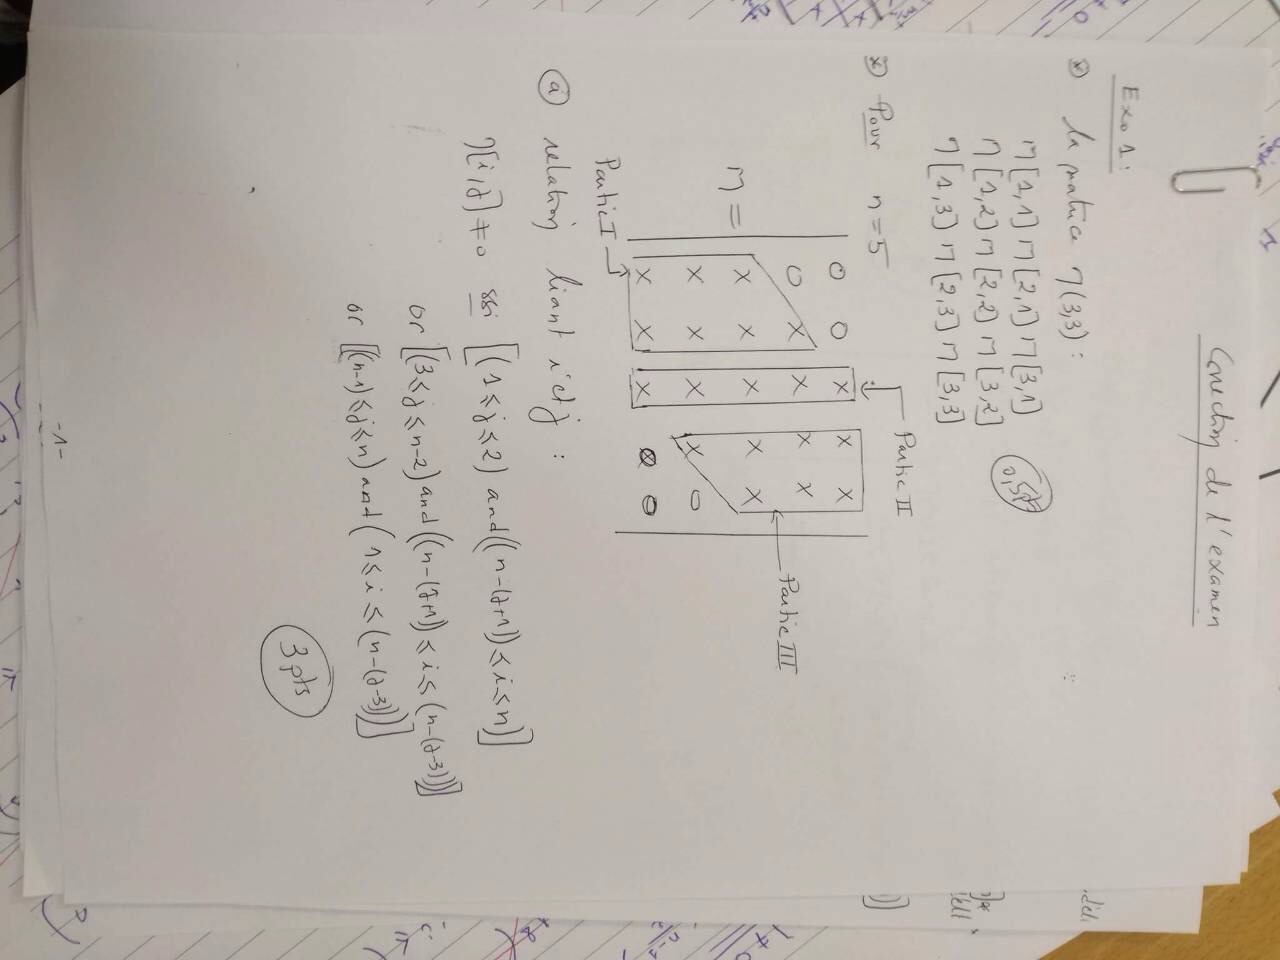 Correction de l'examen
Exo1:
* la matrice M(3,3) :
M[1,1) M[2,1) M[3,1)
M[1,2) M[2,2) M[3,2)
M[1,3) M[2,3) M[3,3)
0,5pt
* Pour n=5
Partie II
0 0 x x x
0 x x x x
M = x x x x x
x x x x 0
x x x 0 0
Partie III
Partie I
a relation liant i et j :
M[i,j] ≠ 0 ssi [(1≤j≤2) and ((n-(j+1)) ≤ i ≤ n)]
or [(3≤j≤n-2) and ((n-(j+1)) ≤ i ≤ (n-(j-3)))]
or [(n-1)≤j≤n) and (1≤i≤ (n-(j-3)))]
3 pts
-1-